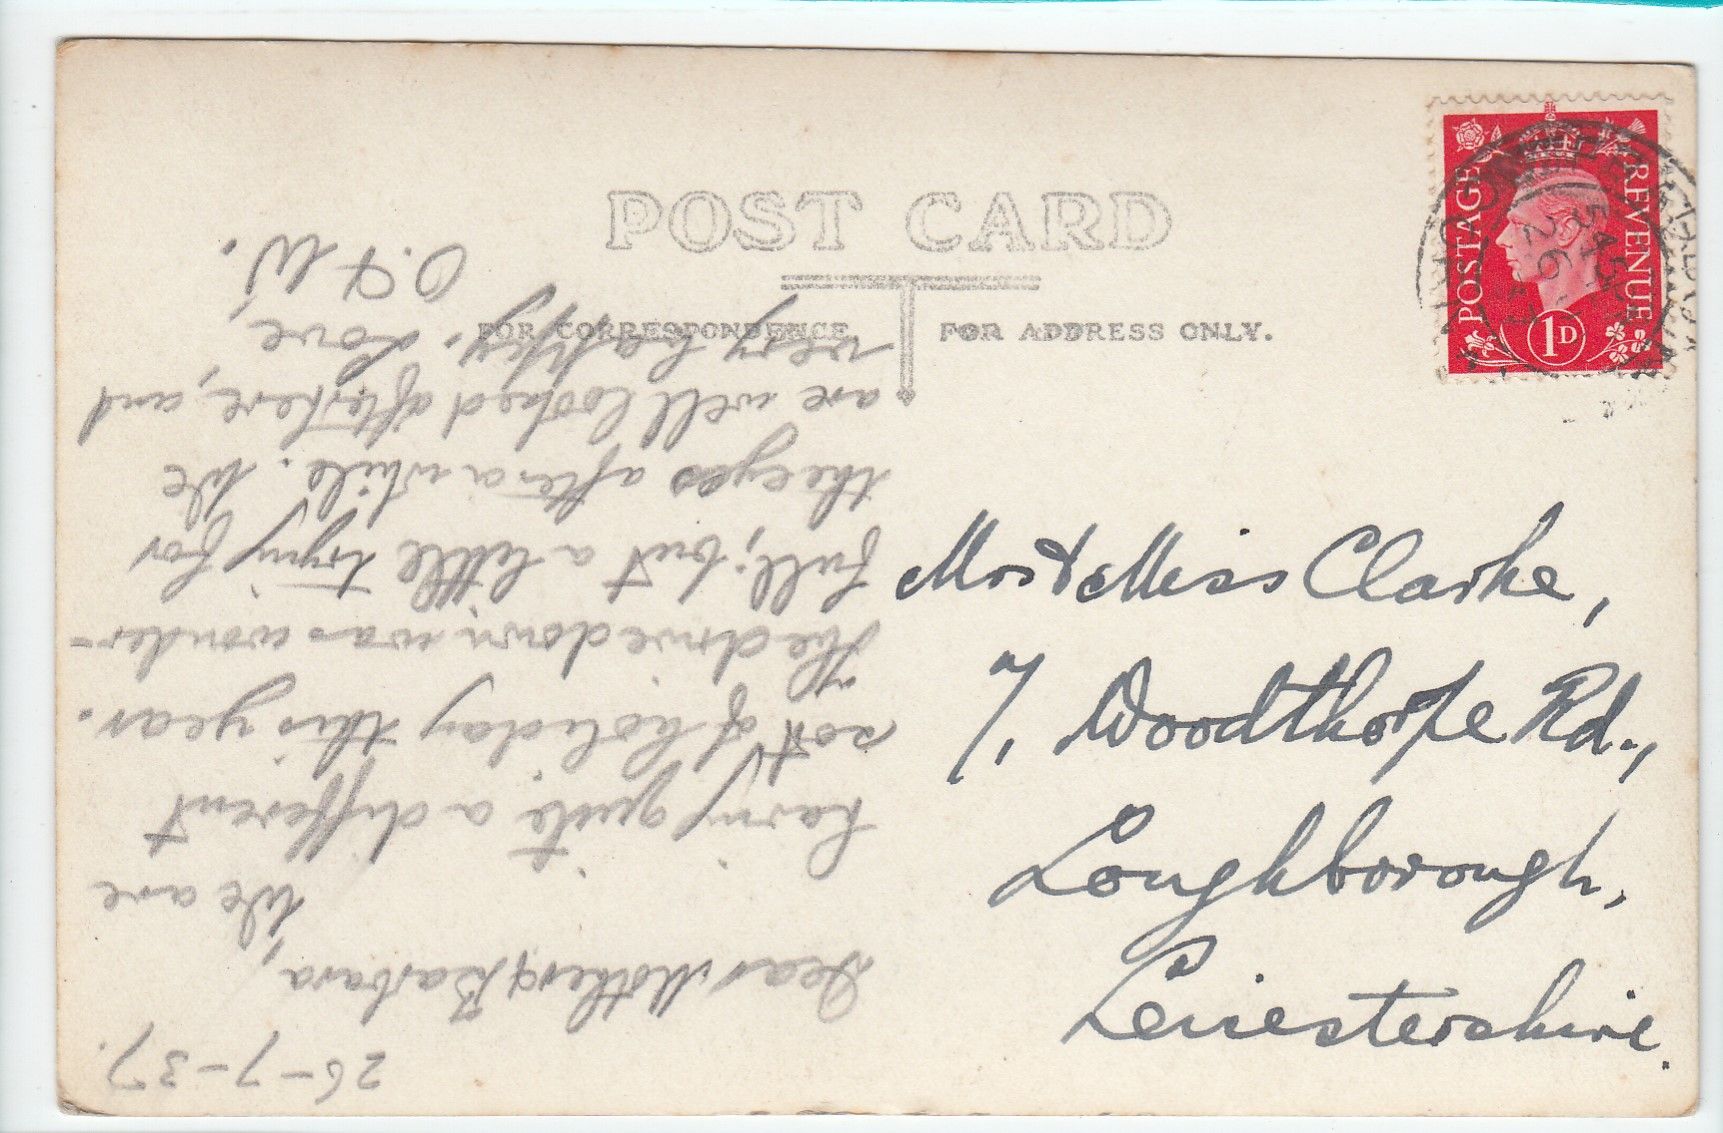 POST CARD
FOR CORRESPONDENCE
FOR ADDRESS ONLY.
POSTAGE REVENUE
1D
Mrs & Miss Clarke,
7, Woodthorpe Rd.,
Loughborough,
Leicestershire.
26-7-37.
Dear Mother & Barbara,
We are
having quite a different
sort of holiday this year.
The drive down was wonder-
full; but a little tryin for
the eyes after a while. We
are well looked after here, and
very happy. Love
O. & W.